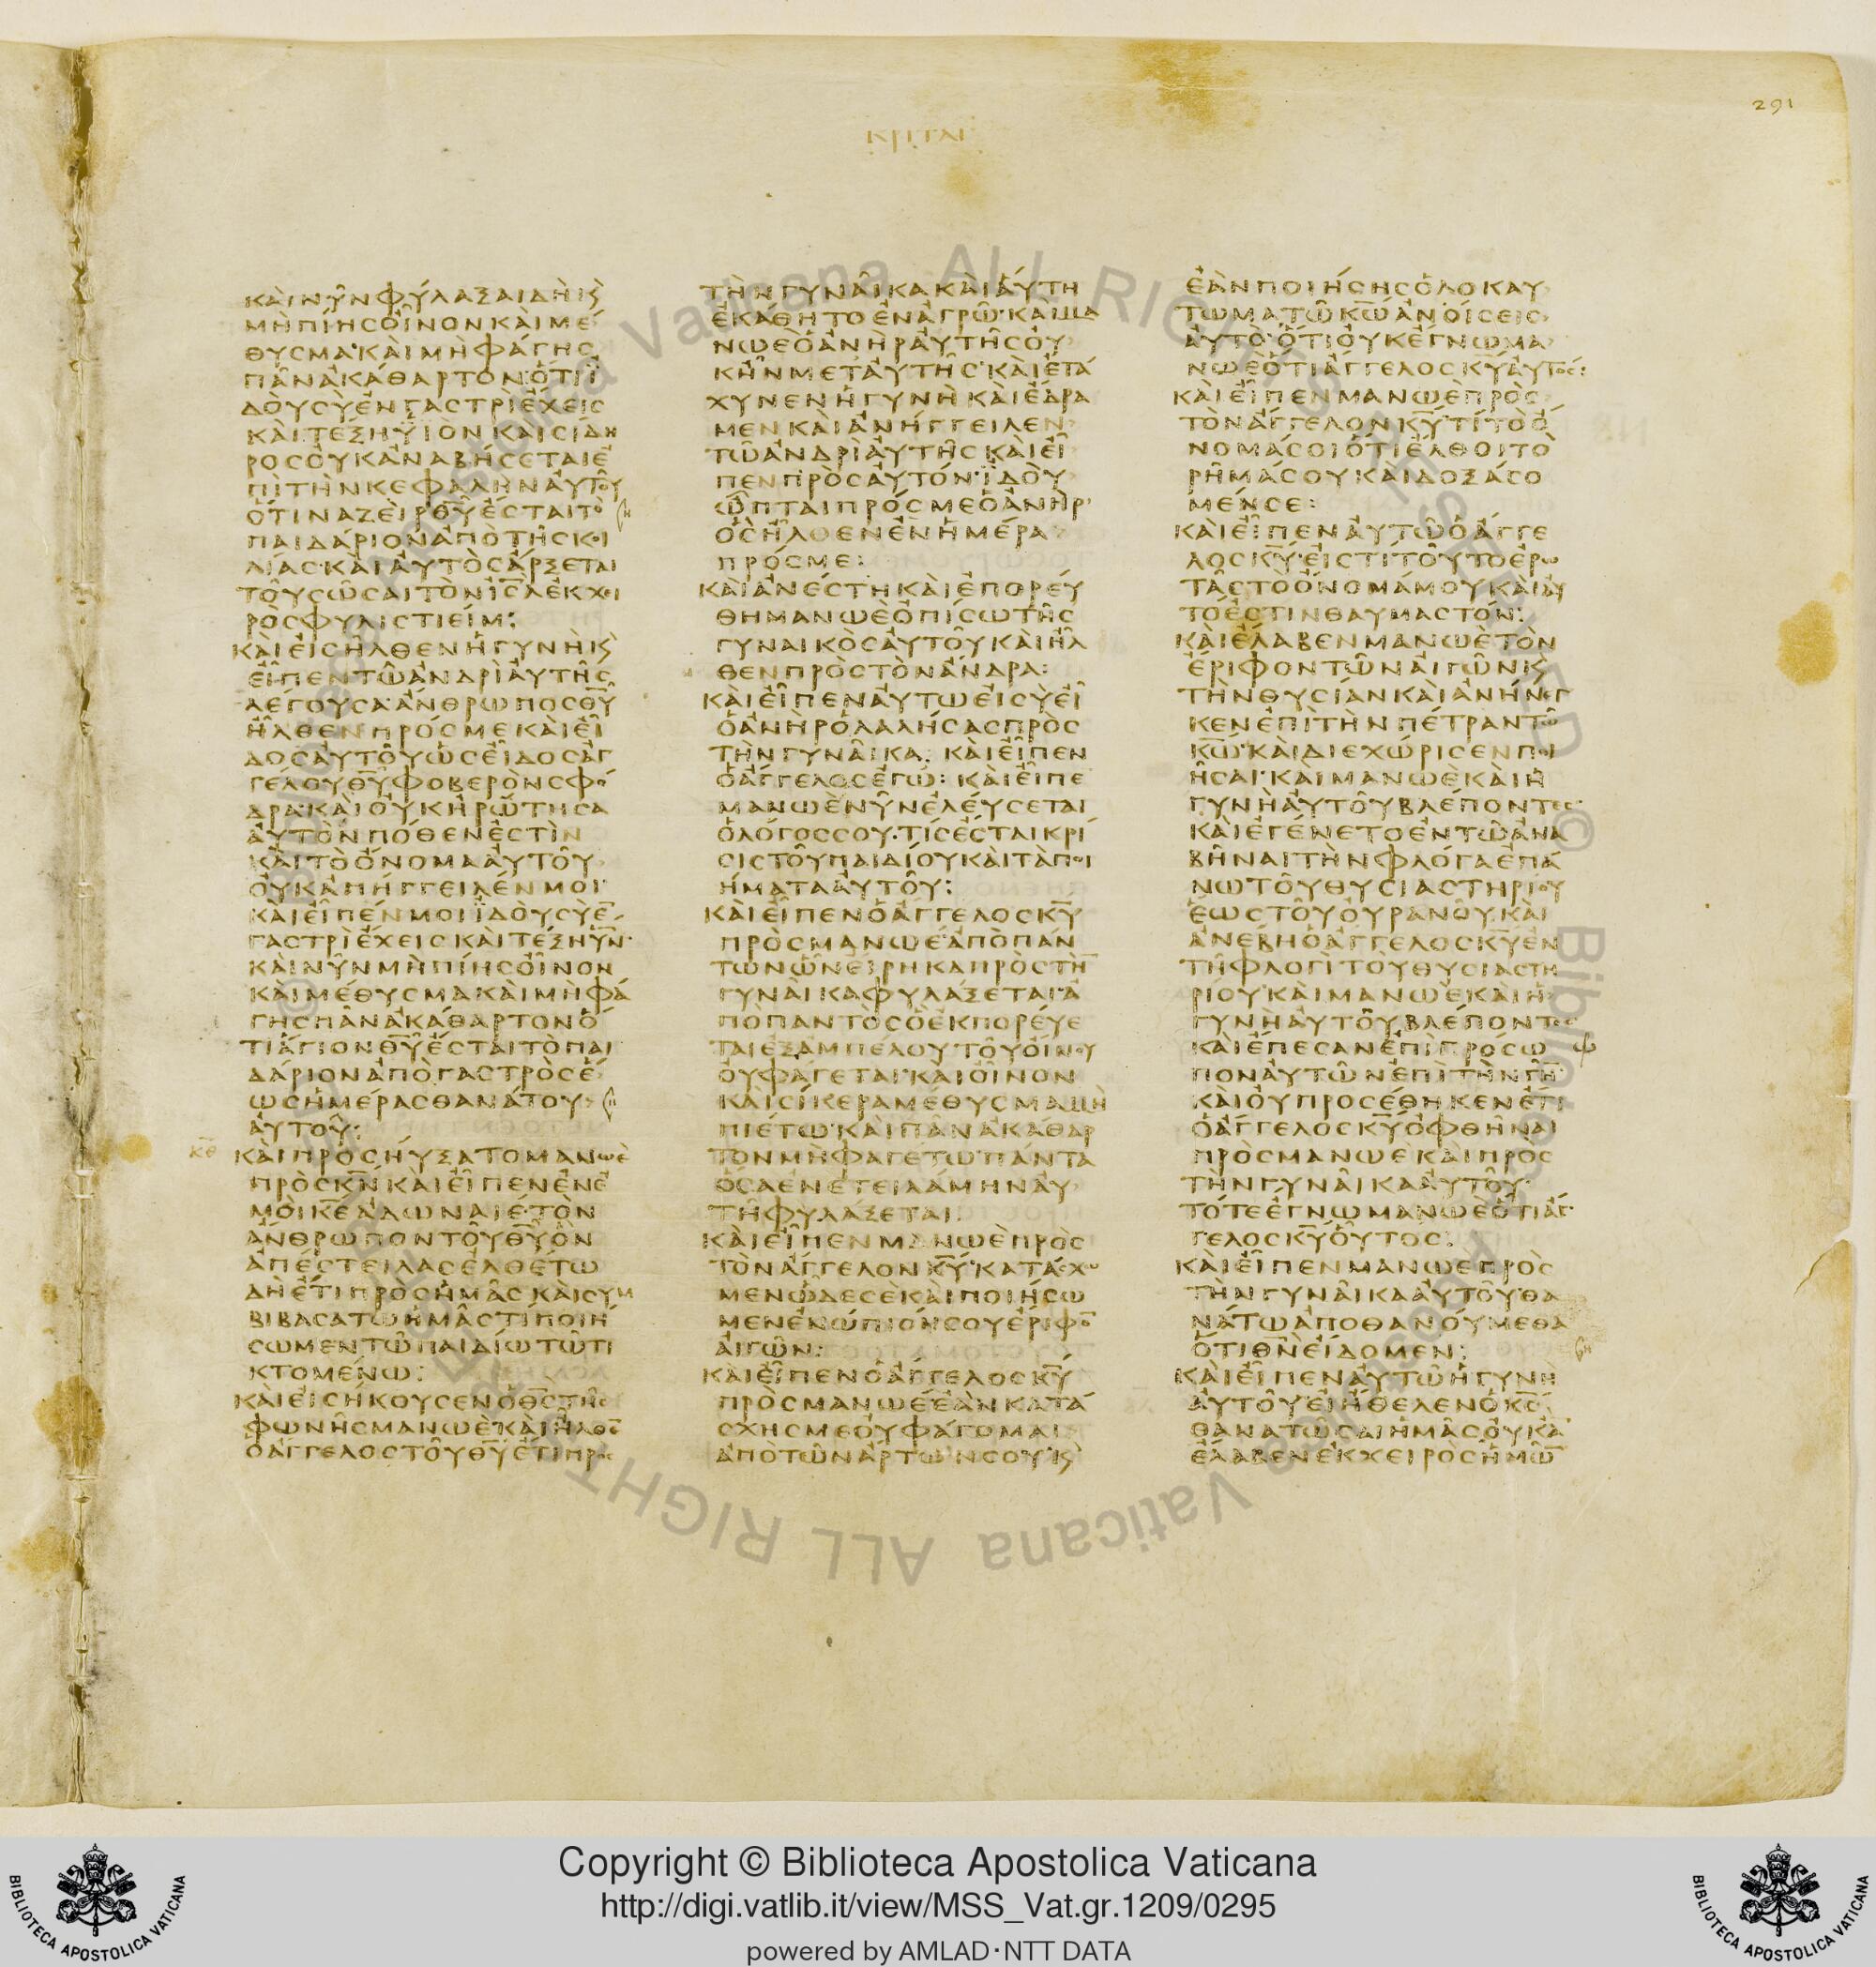 291
ΚΡΙΤΑΙ
ΚΑΙΝΥΝΦΥΛΑΞΑΙΔΗΚϚ
ΜΗΠΙΗϹΟΙΝΟΝΚΑΙΜΕ
ΘΥϹΜΑΚΑΙΜΗΦΑΓΗϹ
ΠΑΝΑΚΑΘΑΡΤΟΝΟΤΙΪ
ΔΟΥϹΥΕΝΓΑϹΤΡΙΕΧΕΙϹ
ΚΑΙΤΕΞΗΫΙΟΝΚΑΙϹΙΔΗ
ΡΟϹΟΥΚΑΝΑΒΗϹΕΤΑΙΕ
ΠΙΤΗΝΚΕΦΑΛΗΝΑΥΤΟΥ
ΟΤΙΝΑΖΕΙΡΘΥΕϹΤΑΙΤΟ
ΠΑΙΔΑΡΙΟΝΑΠΟΤΗϹΚΟΙ
ΛΙΑϹΚΑΙΑΥΤΟϹΑΡΞΕΤΑΙ
ΤΟΥϹΩϹΑΙΤΟΝΙϹΛΕΚΧΕΙ
ΡΟϹΦΥΛΙϹΤΙΕΙΜ:
ΚΑΙΕΙϹΗΛΘΕΝΗΓΥΝΗΚϚ
ΕΙΠΕΝΤΩΑΝΔΡΙΑΥΤΗϹ
ΛΕΓΟΥϹΑΑΝΘΡΩΠΟϹΘΥ
ΗΛΘΕΝΠΡΟϹΜΕΚΑΙΕΙ
ΔΟϹΑΥΤΟΥΩϹΕΙΔΟϹΑΓ
ΓΕΛΟΥΘΥΦΟΒΕΡΟΝϹΦΟ
ΔΡΑΚΑΙΟΥΚΗΡΩΤΗϹΑ
ΑΥΤΟΝΠΟΘΕΝΕϹΤΙΝ
ΚΑΙΤΟΟΝΟΜΑΑΥΤΟΥ
ΟΥΚΑΠΗΓΓΕΙΛΕΝΜΟΙ
ΚΑΙΕΙΠΕΝΜΟΙΪΔΟΥϹΥΕ̄
ΓΑϹΤΡΙΕΧΕΙϹΚΑΙΤΕΞΗΥΝ
ΚΑΙΝΥΝΜΗΠΙΗϹΟΙΝΟΝ
ΚΑΙΜΕΘΥϹΜΑΚΑΙΜΗΦΑ
ΓΗϹΠΑΝΑΚΑΘΑΡΤΟΝΟ
ΤΙΑΓΙΟΝΘΥΕϹΤΑΙΤΟΠΑΙ
ΔΑΡΙΟΝΑΠΟΓΑϹΤΡΟϹΕ
ΩϹΗΜΕΡΑϹΘΑΝΑΤΟΥ
ΑΥΤΟΥ:
ΚΘ ΚΑΙΠΡΟϹΗΥΞΑΤΟΜΑΝΩΕ
ΠΡΟϹΚΝΚΑΙΕΙΠΕΝΕΝΕ
ΜΟΙΚΕΑΔΩΝΑΙΕΤΟΝ
ΑΝΘΡΩΠΟΝΤΟΥΘΥΟΝ
ΑΠΕϹΤΕΙΛΑϹΕΛΘΕΤΩ
ΔΗΕΤΙΠΡΟϹΗΜΑϹΚΑΙϹΥΜ
ΒΙΒΑϹΑΤΩΗΜΑϹΤΙΠΟΙΗ
ϹΩΜΕΝΤΩΠΑΙΔΙΩΤΩΤΙ
ΚΤΟΜΕΝΩ:
ΚΑΙΕΙϹΗΚΟΥϹΕΝΟΘϹΤΗϹ
ΦΩΝΗϹΜΑΝΩΕΚΑΙΗΛΘΕ̄
ΟΑΓΓΕΛΟϹΤΟΥΘΥΕΤΙΠΡΟϹ
ΤΗΝΓΥΝΑΙΚΑΚΑΙΑΥΤΗ
ΕΚΑΘΗΤΟΕΝΑΓΡΩΚΑΙΜΑ
ΝΩΕΟΑΝΗΡΑΥΤΗϹΟΥ
ΚΗΝΜΕΤΑΥΤΗϹΚΑΙΕΤΑ
ΧΥΝΕΝΗΓΥΝΗΚΑΙΕΔΡΑ
ΜΕΝΚΑΙΑΝΗΓΓΕΙΛΕΝ
ΤΩΑΝΔΡΙΑΥΤΗϹΚΑΙΕΙ
ΠΕΝΠΡΟϹΑΥΤΟΝΪΔΟΥ
ΩΠΤΑΙΠΡΟϹΜΕΟΑΝΗΡ
ΟϹΗΛΘΕΝΕΝΗΜΕΡΑ
ΠΡΟϹΜΕ:
ΚΑΙΑΝΕϹΤΗΚΑΙΕΠΟΡΕΥ
ΘΗΜΑΝΩΕΟΠΙϹΩΤΗϹ
ΓΥΝΑΙΚΟϹΑΥΤΟΥΚΑΙΗΛ
ΘΕΝΠΡΟϹΤΟΝΑΝΔΡΑ:
ΚΑΙΕΙΠΕΝΑΥΤΩΕΙϹΥΕΙ
ΟΑΝΗΡΟΛΑΛΗϹΑϹΠΡΟϹ
ΤΗΝΓΥΝΑΙΚΑ. ΚΑΙΕΙΠΕΝ
ΟΑΓΓΕΛΟϹΕΓΩ: ΚΑΙΕΙΠΕ
ΜΑΝΩΕΝΥΝΕΛΕΥϹΕΤΑΙ
ΟΛΟΓΟϹϹΟΥ.ΤΙϹΕϹΤΑΙΚΡΙ
ϹΙϹΤΟΥΠΑΙΔΙΟΥΚΑΙΤΑΠΟΙ
ΗΜΑΤΑΑΥΤΟΥ:
ΚΑΙΕΙΠΕΝΟΑΓΓΕΛΟϹΚΥ
ΠΡΟϹΜΑΝΩΕΑΠΟΠΑΝ
ΤΩΝΩΝΕΙΡΗΚΑΠΡΟϹΤΗ̄
ΓΥΝΑΙΚΑΦΥΛΑΞΕΤΑΙΑ
ΠΟΠΑΝΤΟϹΟΕΚΠΟΡΕΥΕ
ΤΑΙΕΞΑΜΠΕΛΟΥΤΟΥΟΙΝΟΥ
ΟΥΦΑΓΕΤΑΙΚΑΙΟΙΝΟΝ
ΚΑΙϹΙΚΕΡΑΜΕΘΥϹΜΑΜΗ
ΠΙΕΤΩΚΑΙΠΑΝΑΚΑΘΑΡ
ΤΟΝΜΗΦΑΓΕΤΩΠΑΝΤΑ
ΟϹΑΕΝΕΤΕΙΛΑΜΗΝΑΥ
ΤΗΦΥΛΑΞΕΤΑΙ.
ΚΑΙΕΙΠΕΝΜΑΝΩΕΠΡΟϹ
ΤΟΝΑΓΓΕΛΟΝΚΥΚΑΤΑϹΧΩ
ΜΕΝΩΔΕϹΕΚΑΙΠΟΙΗϹΩ
ΜΕΝΕΝΩΠΙΟΝϹΟΥΕΡΙΦΟ̄
ΑΙΓΩΝ:
ΚΑΙΕΙΠΕΝΟΑΓΓΕΛΟϹΚΥ
ΠΡΟϹΜΑΝΩΕΕΑΝΚΑΤΑ
ϹΧΗϹΜΕΟΥΦΑΓΟΜΑΙ
ΑΠΟΤΩΝΑΡΤΩΝϹΟΥΚϚ
ΕΑΝΠΟΙΗϹΗϹΟΛΟΚΑΥ
ΤΩΜΑΤΩΚΩΑΝΟΙϹΕΙϹ
ΑΥΤΟΟΤΙΟΥΚΕΓΝΩΜΑ
ΝΩΕΟΤΙΑΓΓΕΛΟϹΚΥΑΥΤΟϹ:
ΚΑΙΕΙΠΕΝΜΑΝΩΕΠΡΟϹ
ΤΟΝΑΓΓΕΛΟΝΚΥΤΙΤΟΟ
ΝΟΜΑϹΟΙΟΤΙΕΛΘΟΙΤΟ
ΡΗΜΑϹΟΥΚΑΙΔΟΞΑϹΟ
ΜΕΝϹΕ:
ΚΑΙΕΙΠΕΝΑΥΤΩΟΑΓΓΕ
ΛΟϹΚΥΕΙϹΤΙΤΟΥΤΟΕΡΩ
ΤΑϹΤΟΟΝΟΜΑΜΟΥΚΑΙΑΥ
ΤΟΕϹΤΙΝΘΑΥΜΑϹΤΟΝ:
ΚΑΙΕΛΑΒΕΝΜΑΝΩΕΤΟΝ
ΕΡΙΦΟΝΤΩΝΑΙΓΩΝΚϚ
ΤΗΝΘΥϹΙΑΝΚΑΙΑΝΗΝΕΓ
ΚΕΝΕΠΙΤΗΝΠΕΤΡΑΝΤΩ
ΚΩΚΑΙΔΙΕΧΩΡΙϹΕΝΠΟΙ
ΗϹΑΙΚΑΙΜΑΝΩΕΚΑΙΗ
ΓΥΝΗΑΥΤΟΥΒΛΕΠΟΝΤΕϹ
ΚΑΙΕΓΕΝΕΤΟΕΝΤΩΑΝΑ
ΒΗΝΑΙΤΗΝΦΛΟΓΑΕΠΑ
ΝΩΤΟΥΘΥϹΙΑϹΤΗΡΙΟΥ
ΕΩϹΤΟΥΟΥΡΑΝΟΥΚΑΙ
ΑΝΕΒΗΟΑΓΓΕΛΟϹΚΥΕΝ
ΤΗΦΛΟΓΙΤΟΥΘΥϹΙΑϹΤΗ
ΡΙΟΥΚΑΙΜΑΝΩΕΚΑΙΗ
ΓΥΝΗΑΥΤΟΥΒΛΕΠΟΝΤΕϹ
ΚΑΙΕΠΕϹΑΝΕΠΙΠΡΟϹΩ
ΠΟΝΑΥΤΩΝΕΠΙΤΗΝΓΗ̄
ΚΑΙΟΥΠΡΟϹΕΘΗΚΕΝΕΤΙ
ΟΑΓΓΕΛΟϹΚΥΟΦΘΗΝΑΙ
ΠΡΟϹΜΑΝΩΕΚΑΙΠΡΟϹ
ΤΗΝΓΥΝΑΙΚΑΑΥΤΟΥ
ΤΟΤΕΕΓΝΩΜΑΝΩΕΟΤΙΑΓ
ΓΕΛΟϹΚΥΟΥΤΟϹ:
ΚΑΙΕΙΠΕΝΜΑΝΩΕΠΡΟϹ
ΤΗΝΓΥΝΑΙΚΑΑΥΤΟΥΘΑ
ΝΑΤΩΑΠΟΘΑΝΟΥΜΕΘΑ
ΟΤΙΘΝΕΙΔΟΜΕΝ:
ΚΑΙΕΙΠΕΝΑΥΤΩΗΓΥΝΗ
ΑΥΤΟΥΕΙΗΘΕΛΕΝΟΚϹ
ΘΑΝΑΤΩϹΑΙΗΜΑϹΟΥΚᾹ
ΕΛΑΒΕΝΕΚΧΕΙΡΟϹΗΜΩ̄
Copyright © Biblioteca Apostolica Vaticana
http://digi.vatlib.it/view/MSS_Vat.gr.1209/0295
powered by AMLAD·NTT DATA
BIBLIOTECA APOSTOLICA VATICANA
BIBLIOTECA APOSTOLICA VATICANA